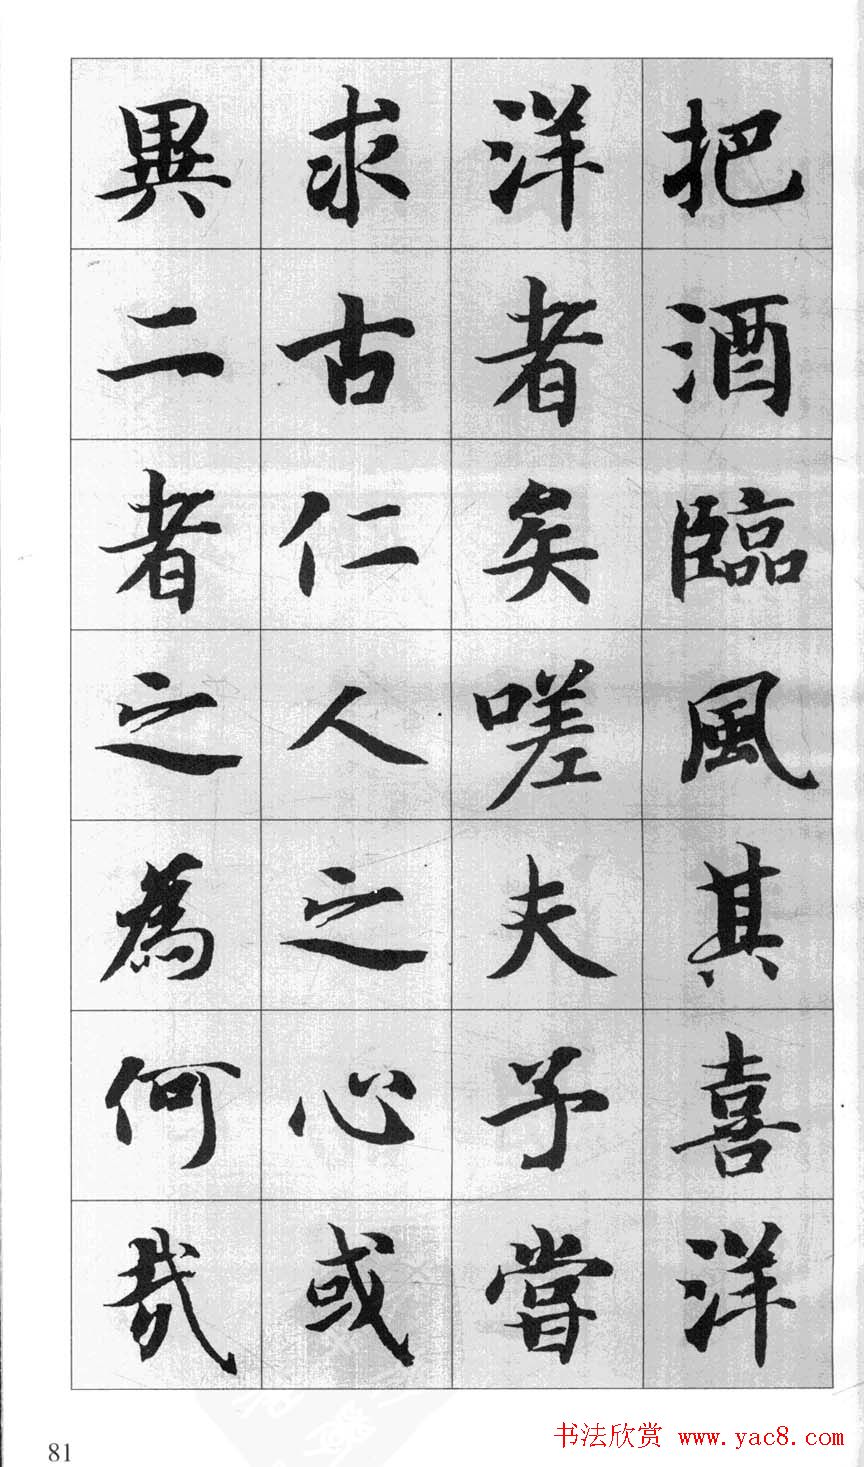 把酒臨風其喜洋
洋者矣嗟夫予嘗
求古仁人之心或
異二者之為何哉
81
书法欣赏 www.yac8.com